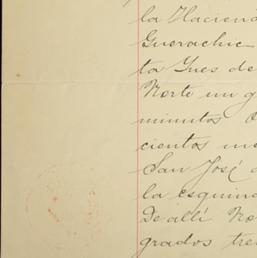 la Haciend
Guerachic
ta Ynes de
Norte un g
minutos O
cientos me
San José d
la esquina
De allí No
grados tre